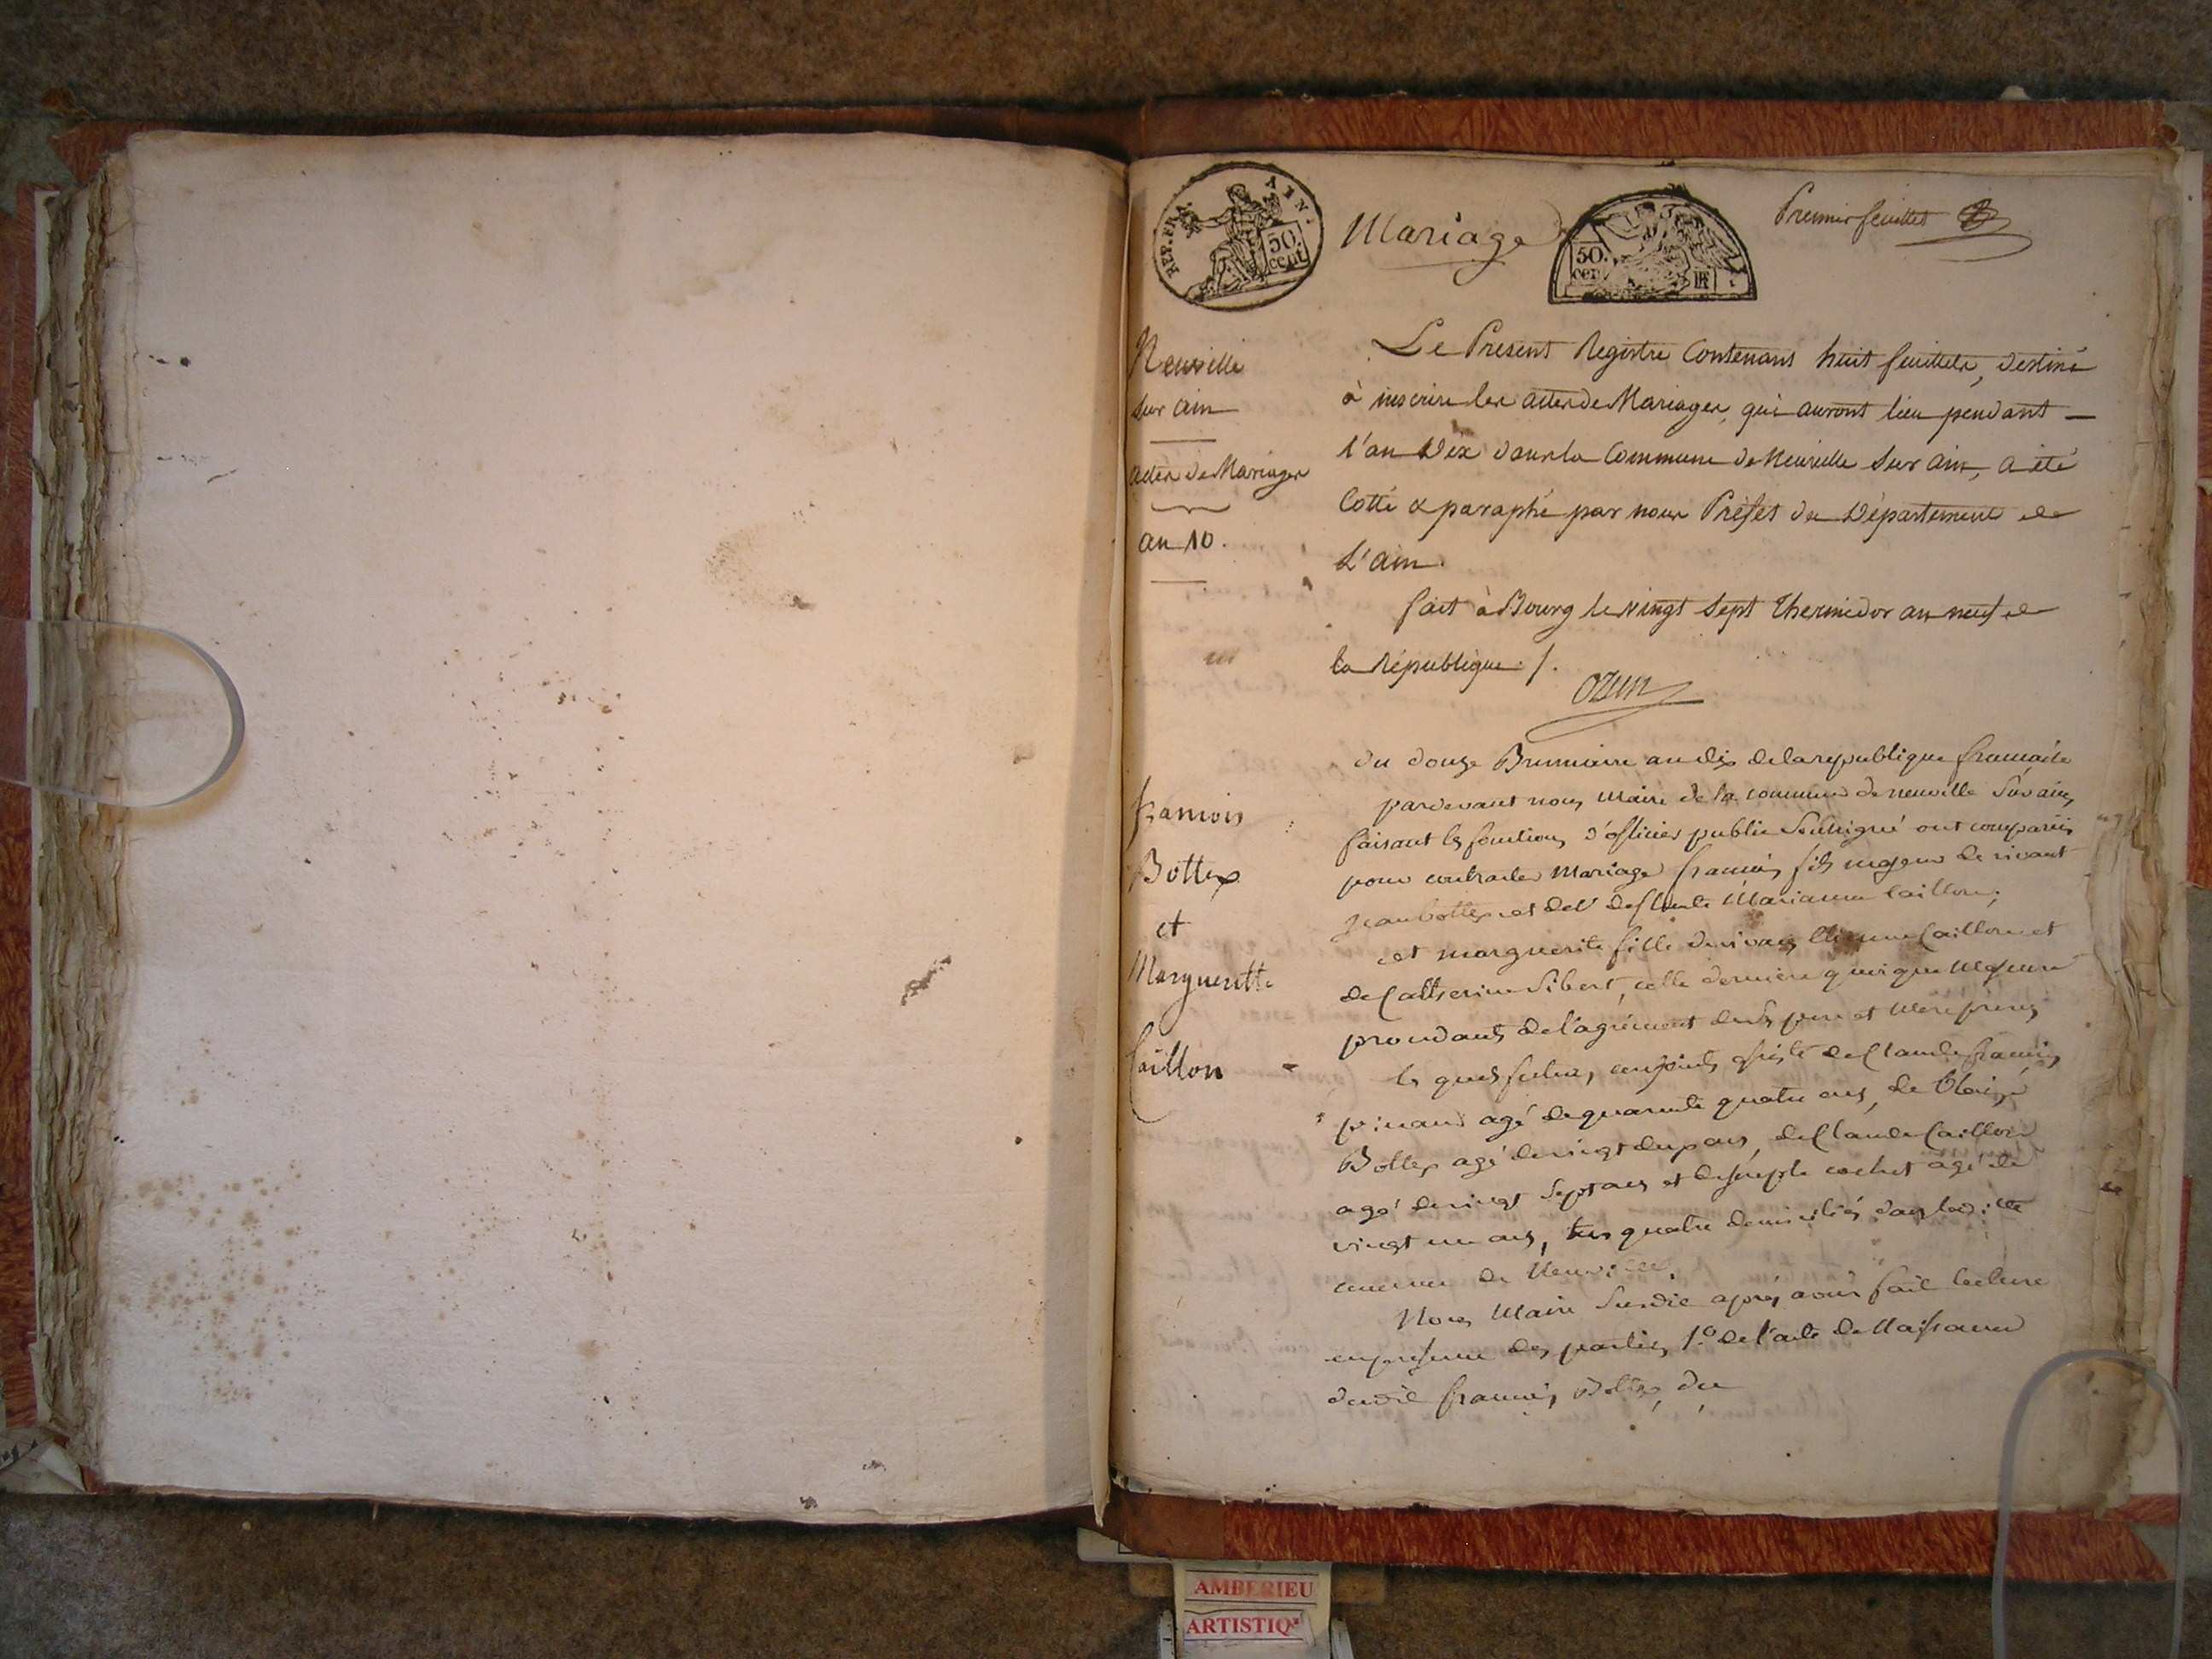 REP. FRA.
AIN.
50.
cent.
Mariage
50.
cen
RF
Premier feuillet
Neuville
sur ain
actes de Mariages
an 10.
Le Présent Registre Contenant huit feuillets, destiné
à inscrire les actes de Mariages, qui auront lieu pendant
l'an Dix dans la Commune de Neuville sur Ain, a été
Cotté & paraphé par nous Préfet du Département de
L'ain.
fait à Bourg le vingt sept Thermidor an neuf de
la République ./.
Ozun
françois
Bottex
et
Margueritte
Caillon
du douze Brumaire an dix de la republique française
pardevant nous Maire de la commune de neuville Sur ain,
faisant les fonctions d'officier public Soussigné ont comparus
pour contracter Mariage françois fils majeur de vivant
jean bottex et de defunte Marianne Caillon,
et marguerite fille de vivans Etienne Caillon et
de Catherine Sibert, cette derniere quoique Majeure
procédants de l'agrément de ses pere et Mere présens
les quels futurs conjoints assisté de Claude françois
pinand agé de quarente quatre ans, de Blaise
Bottex agé de vingt deux ans, de Claude Caillon
agé de vingt Sept ans et de joseph cochet agé de
vingt un ans, tous quatre domiciliés dans la ditte
commune de Neuville.
Nous Maire Susdit après avoir fait lecture
en présence des parties, 1.º de l'acte de Naissance
dudit françois Bottex, du
AMBERIEU
ARTISTIQ